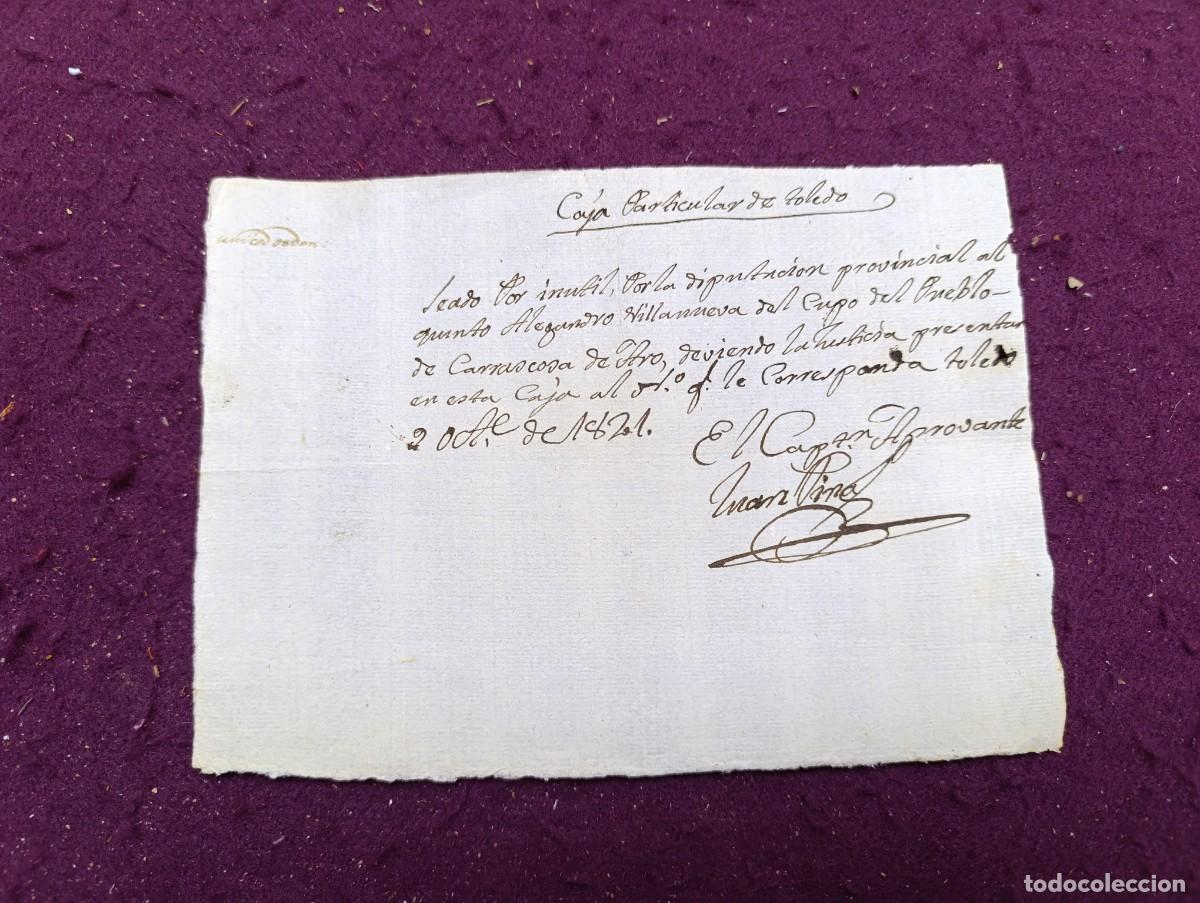 Caja Particular de toledo
Seado Por inutil, Porla diputacion provincial al
quinto Alejandro Villanueva del Cupo del Pueblo-
de Carrascosa de
deviendo la Justicia presentar
en esta Caja al
q.e le Corresponda toledo
2 Oct.e de 1821.
El Cap.tn Aprovante
Juan Pino
todocoleccion